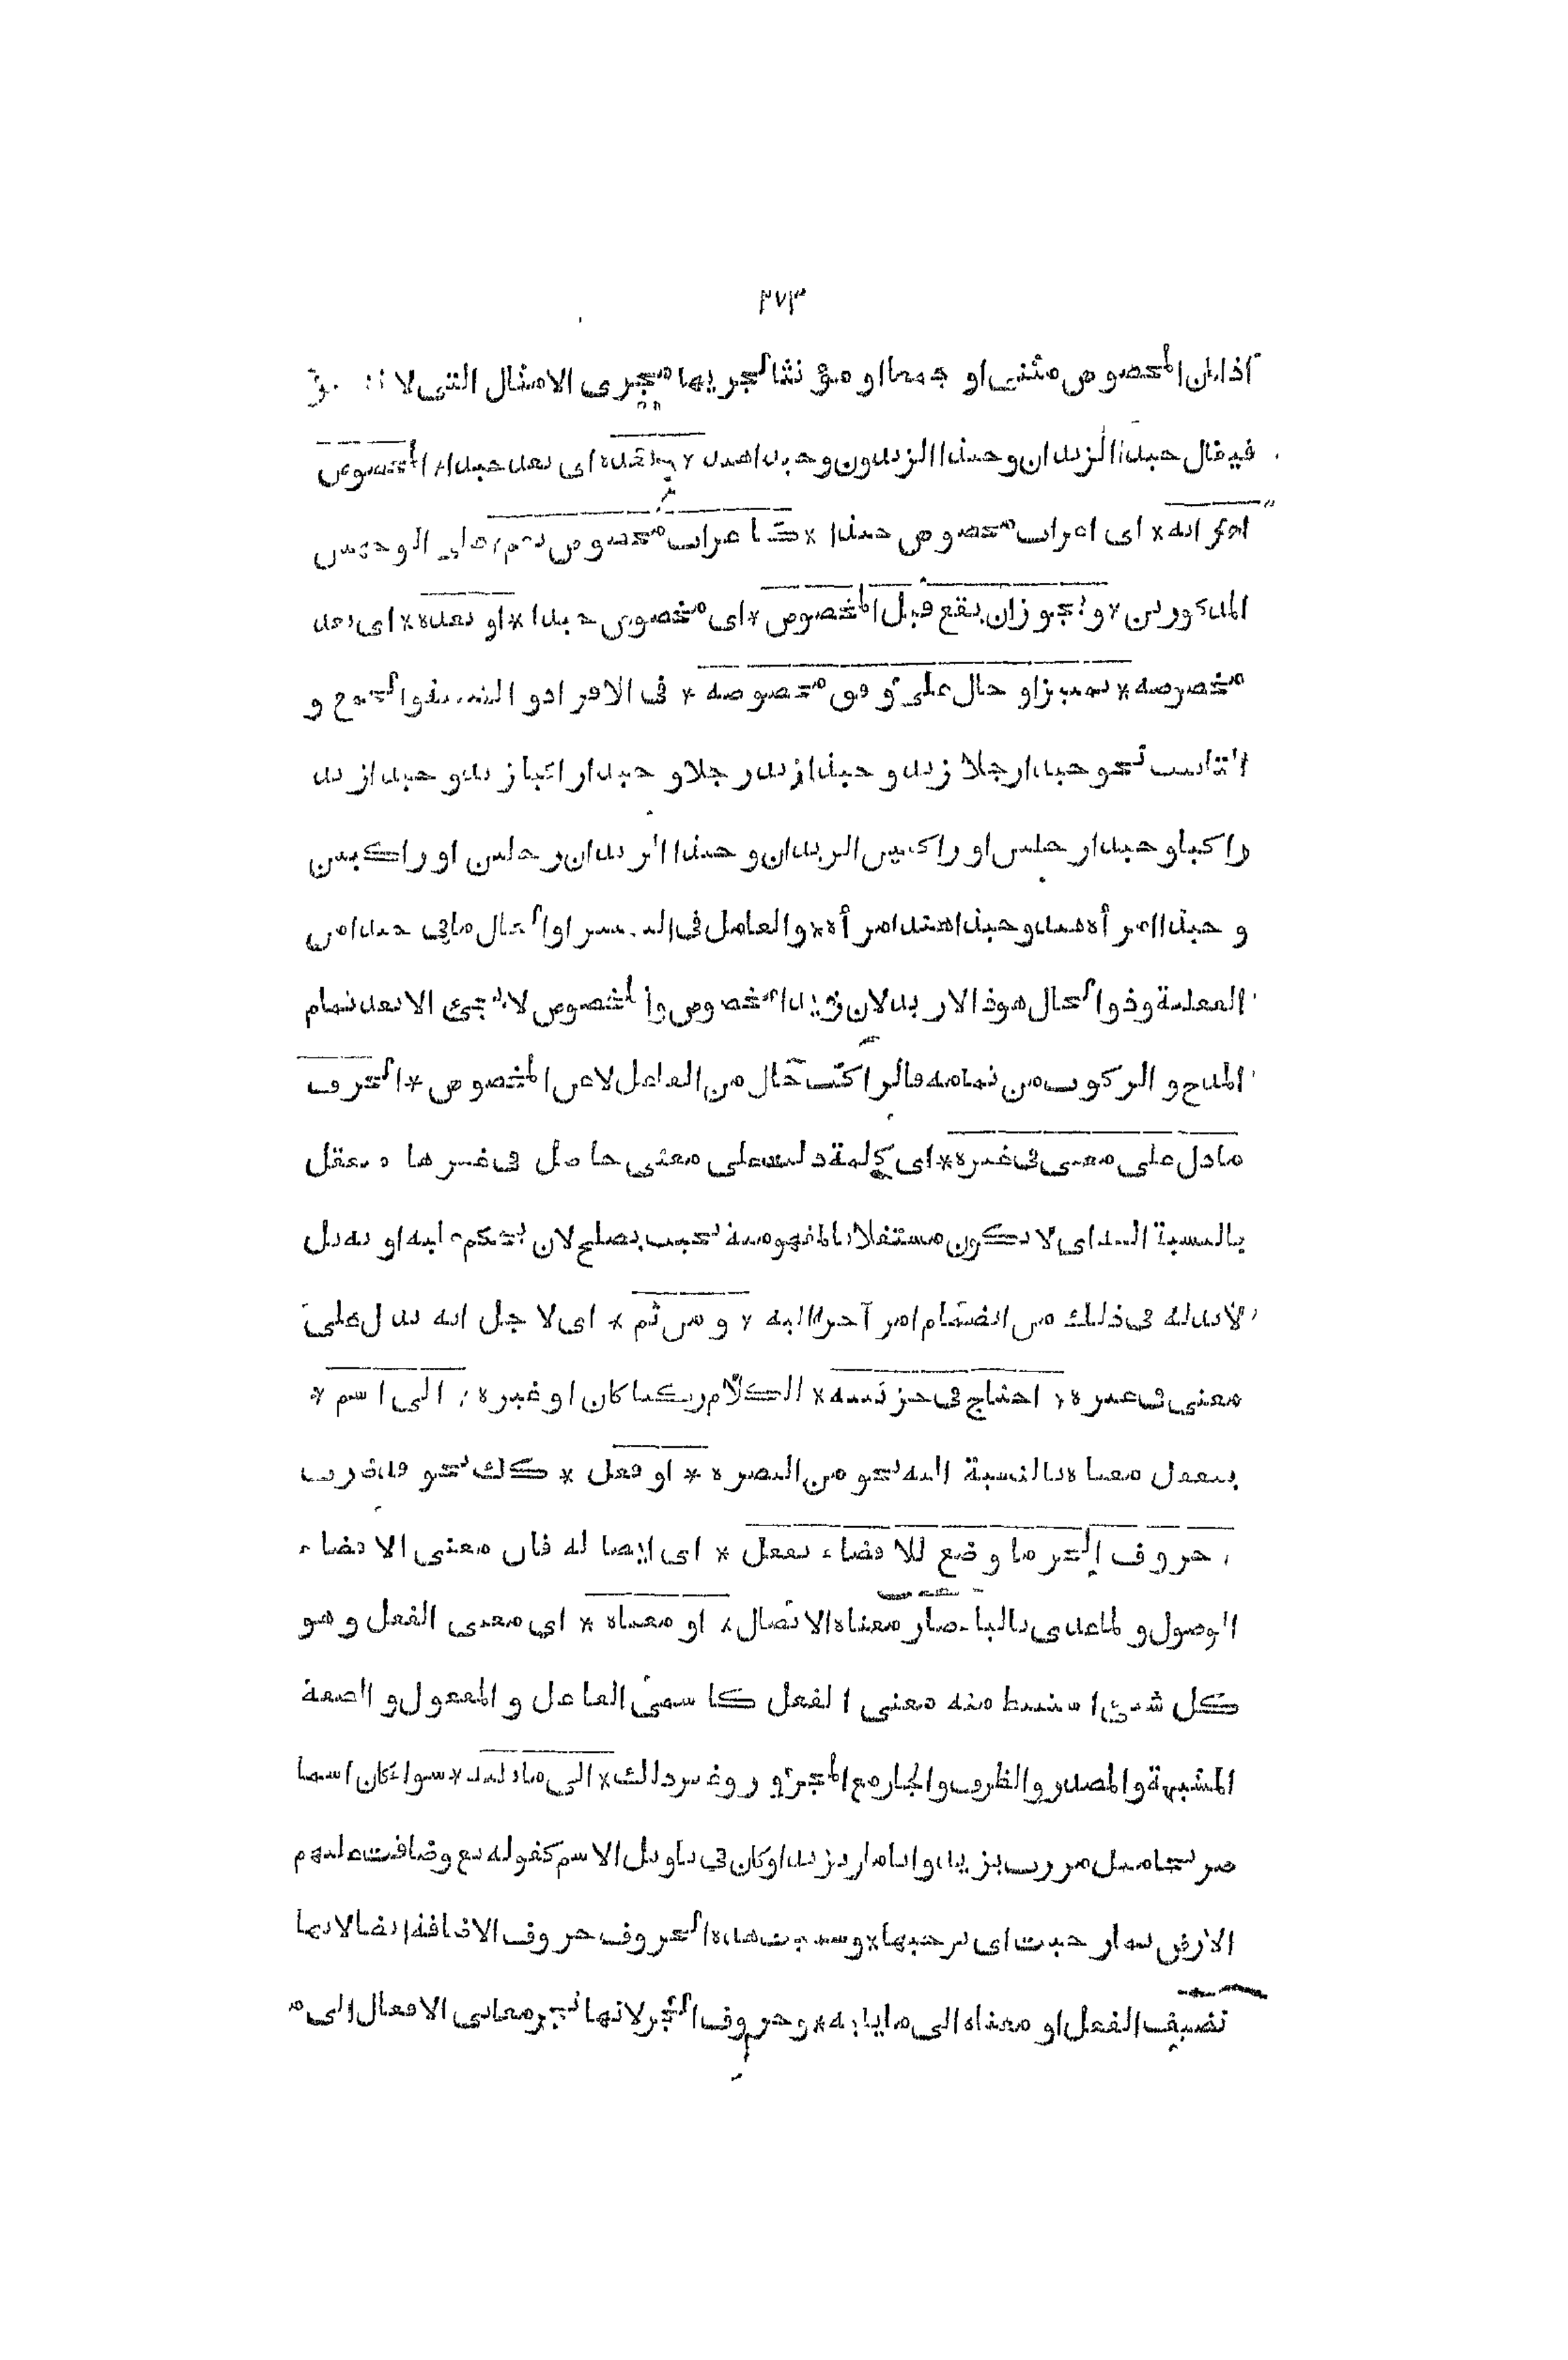 ٣٧٣
اذا كان المخصوص مثنى او جمعا او مؤنثا لجريها مجرى الامثال التى لا تتغير
فيقال حبذا الزيدان وحبذا الزيدون وحبذا هند * وبعده * اى بعد حبذا * المخصوص
واعرابه * اى اعراب مخصوص حبذا * كاعراب مخصوص نعم * على الوجهين
المذكورين * ويجوز ان يقع قبل المخصوص * اى مخصوص حبذا * او بعده * اى بعد
مخصوصه * تمييز او حال على وفق مخصوصه * فى الافراد والتثنية والجمع و
التانيث نحو حبذا رجلا زيد و حبذا زيد رجلا و حبذا راكبا زيد و حبذا زيد
راكبا و حبذا رجلين او راكبين الزيدان و حبذا الزيدان رجلين او راكبين
و حبذا امرأة هند و حبذا هند امرأة * والعامل فى التمييز او الحال ما فى حبذا من
الفعلية وذو الحال هو ذا لا زيد لان زيدا مخصوص والمخصوص لا يجئ الا بعد تمام
المدح و الركوب من تمامه فالراكب حال من الفاعل لا عن المخصوص * الحرف
ما دل على معنى فى غيره * اى كلمة دلت على معنى حاصل فى غيرها متعقل
بالنسبة اليه اى لا يكون مستقلا بالمفهومية بحيث يصلح لان يحكم عليه او به بل
لابد له فى ذلك من انضمام امر آخر اليه * و من ثم * اى لاجل انه يدل على
معنى فى غيره * احتاج فى جزئيته * الكلام ركنا كان او غيره * الى اسم *
يتعقل معناه بالنسبة اليه نحو من البصره * او فعل * كك نحو قد ضرب
حروف الجر ما وضع للافضاء بفعل * اى ايصاله فان معنى الافضاء
الوصول و لما عدى بالباء صار معناه الايصال * او معناه * اى معنى الفعل وهو
كل شئ استنبط منه معنى الفعل كاسمى الفاعل و المفعول و الصفة
المشبهة والمصدر والظرف والجار مع المجرور وغير ذلك * الى ما يليه * سواء كان اسما
صريحا مثل مررت بزيد وانا مار بزيد او كان فى تاويل الاسم كقوله تع وضاقت عليهم
الارض بما رحبت اى برحبها * وسميت هذه الحروف حروف الاضافة ايضا لانها
تضيف الفعل او معناه الى ما يليه * وحروف الجر لانها تجر معانى الافعال الى م